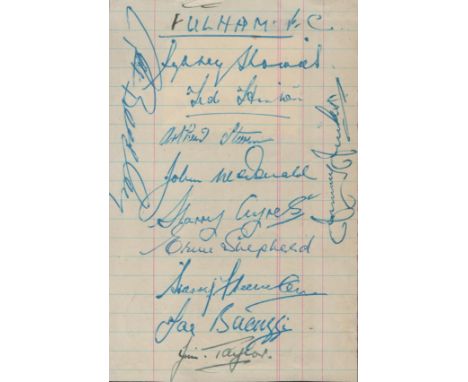 FULHAM. F.C.
Sydney Thomas
Ted Hinton
Arthur Stevens
John McDonald
"Harry Ayres"
Ernie Shepherd
Harry Freeman
Joe Bacuzzi
Jim. Taylor.